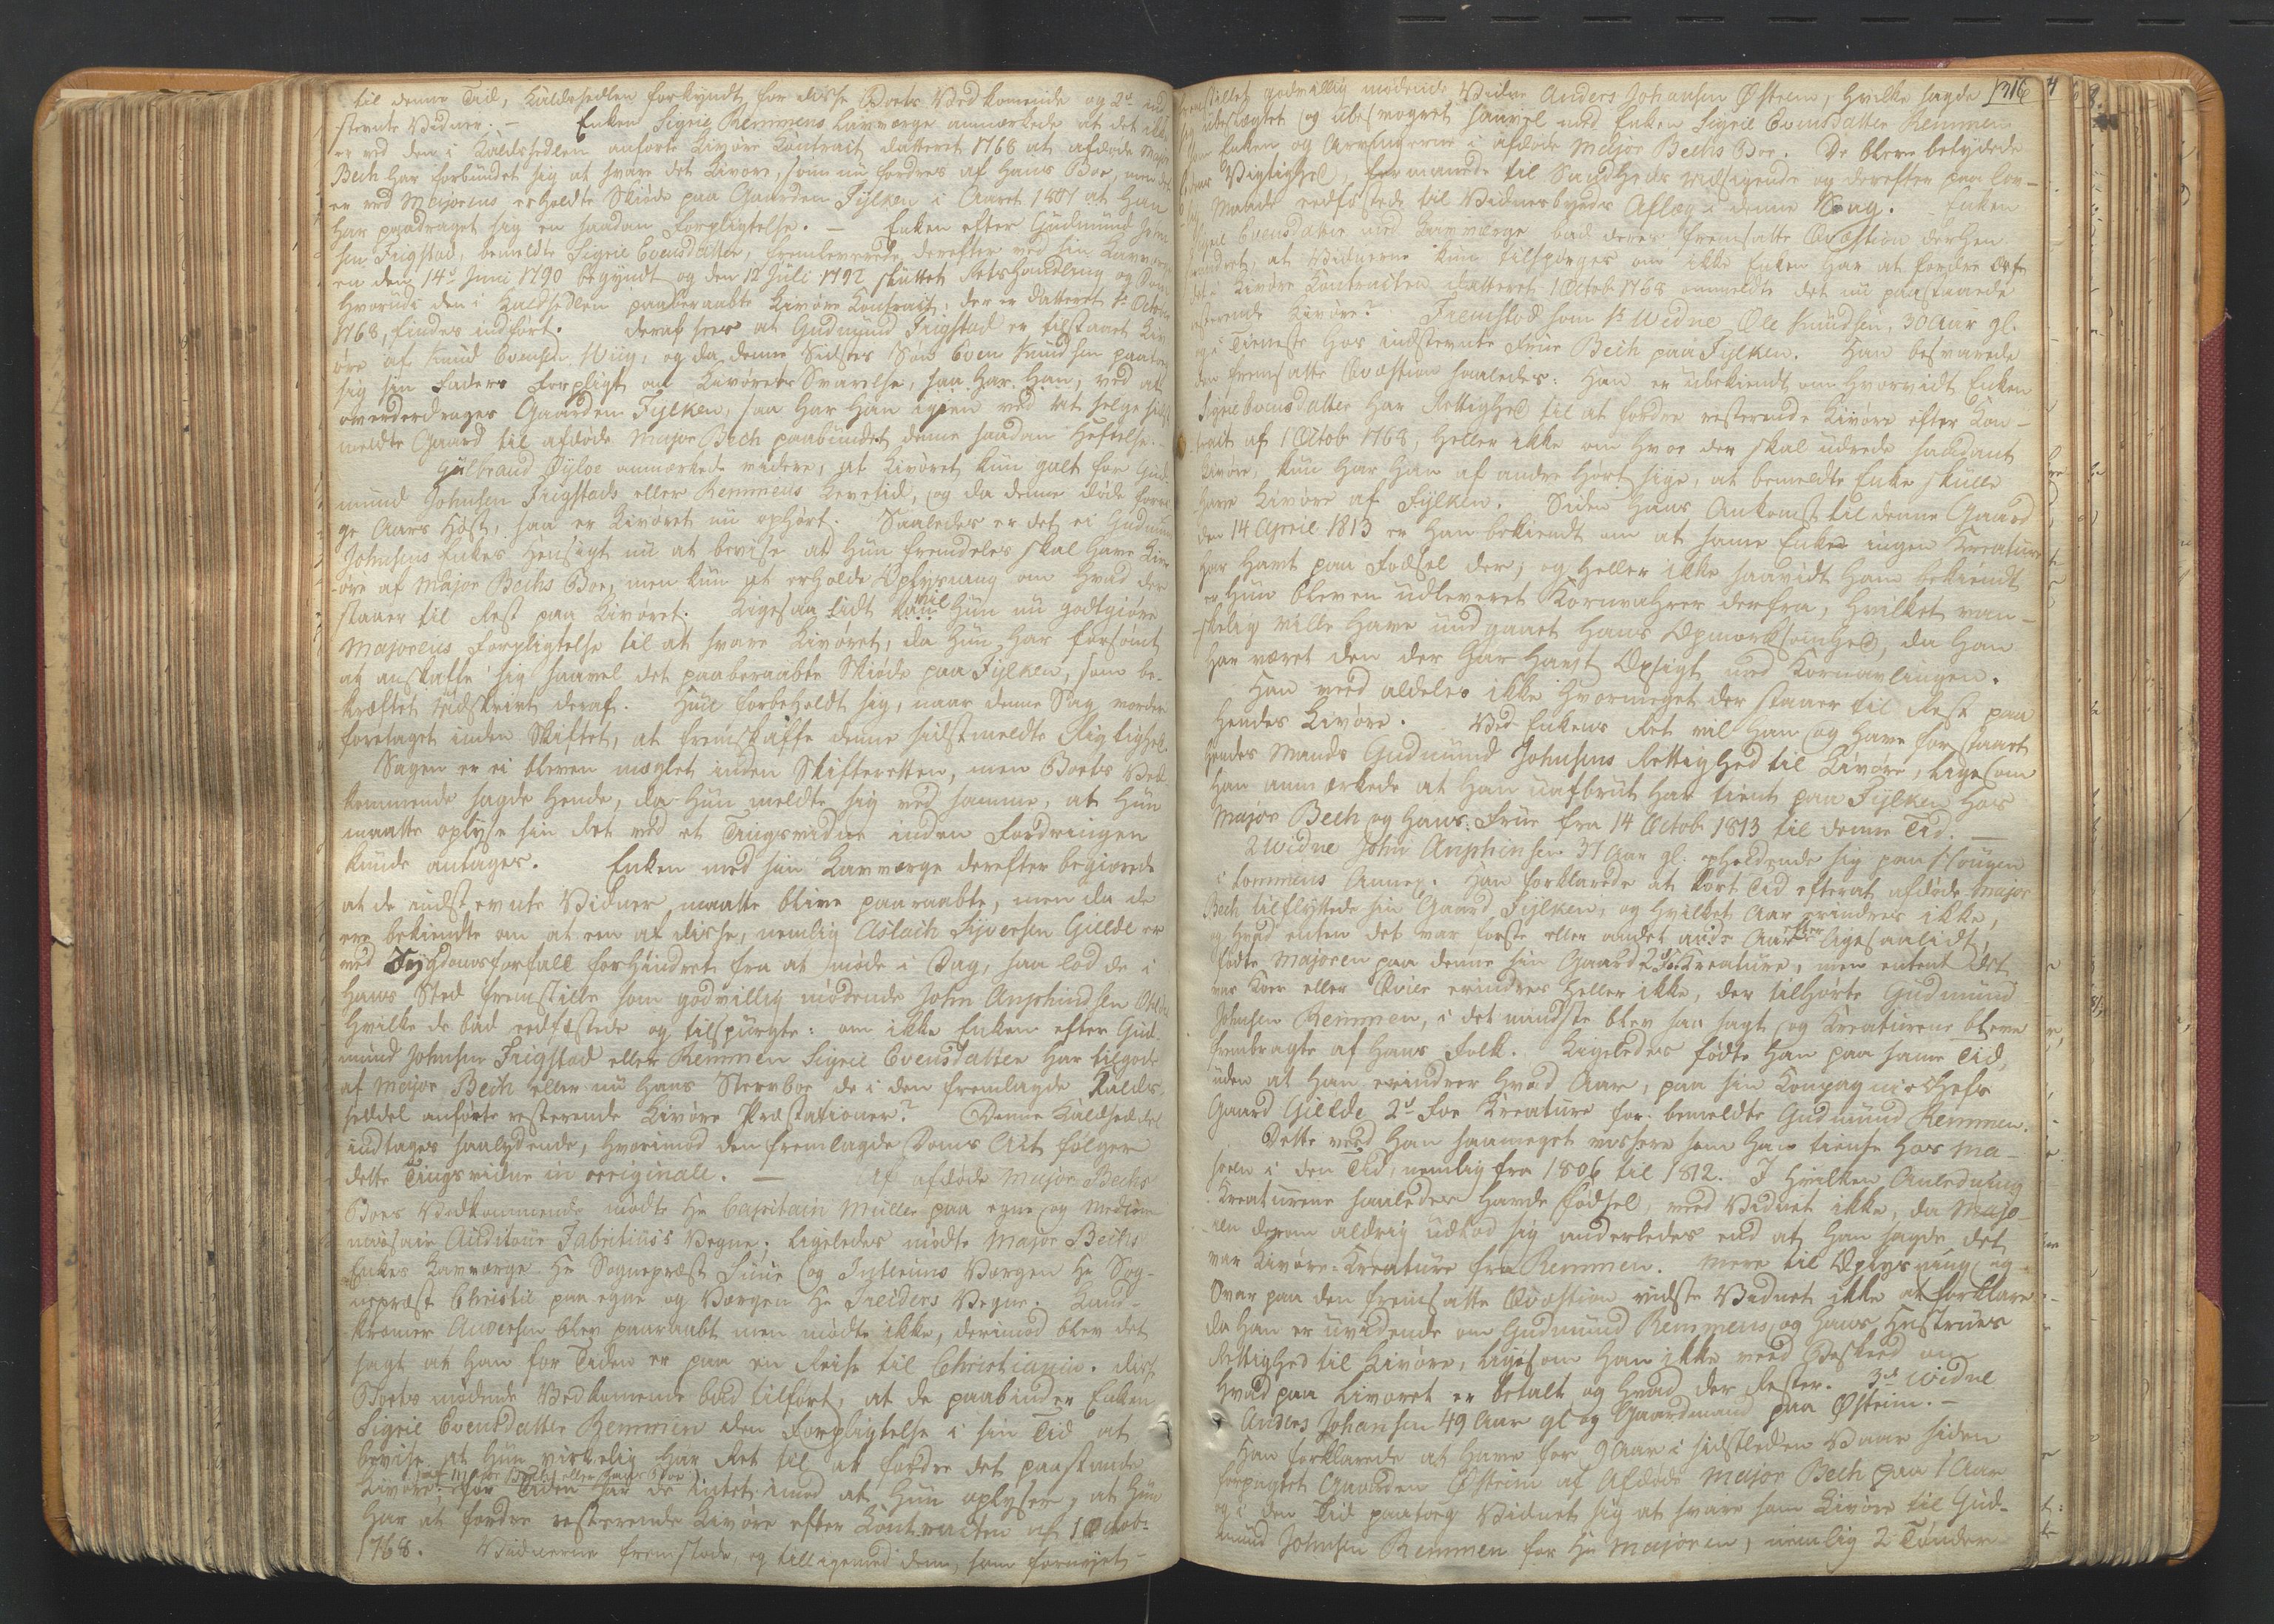 til denne Tid, Kaldsedlen forkyndt for disse Boets Vedkomende og 2de ind
stevnte Vidner. – Enken Sigrie Remmens Lavværge anmærkede at det ikke
er ved den i Kaldsedlen anførte Livøre Contract datteret 1768 at afdøde Major
Bech har forbundet sig at svare det Livøre, som nu fordres af hans Boe, men det
er ved Majorens erholdte Skiøde paa Gaarden Fylken i Aaret 1801 at han
har paadraget sig en saadan Forpligtelse. – Enken efter Gudmund John
sen Frigstad, bemeldte Sigrie Evensdatter, fremleverede derefter ved sin Lavværge
en den 14de Juni 1790 begyndt og den 12 Juli 1792 sluttet Retshandling og Dom
hvorudi den i Kaldsedlen paaberaabte Livøre Contract, der er datteret 1ste October
1768, findes indført. Deraf sees at Gudmund Frigstad er tilstaaet Liv
øre af Knud Evensen Wiig, og da denne Sidstes Søn Even Knudsen paatog
sig sin Faders Forpligt om Livørets Svarelse, saa har han, ved at
overdrages Gaarden Fylken, saa har han igjen ved at selge sidst
meldte Gaard til afdøde Major Bech paabundet denne saadan Heftelse.
Gulbrand anmærkede videre, at Livøret kun galt for Gud-
mund Johnsen Frigstads eller Remmens Levetid, og da denne døde forri
ge Aars Høst, saa er Livøret nu ophørt. Saaledes er det ei Gudmund
Johnsens Enkes Hensigt nu at bevise at hun fremdeles skal have Liv
øre af Major Bechs Boe, men kun at erholde Oplysning om hvad der
staaer til Rest paa Livøret. Ligesaa lidt vil hun nu godtgiøre
Majorens Forpligtelse til at svare Livøret, da hun har forsømt
at anskaffe sig saavel det paaberaabte Skiøde paa Fylken, som be-
kræftet Udskrivt deraf. Hun forbeholdt sig, naar denne Sag vorder
foretaget inden Skiftet, at fremskaffe denne sidstmeldte Rigtighed
Sagen er ei bleven mæglet inden Skifteretten, men Boets Ved-
kommende sagde hende, da hun meldte sig ved samme, at hun
maatte oplyse sin Ret ved et Tingsvidne inden Fordringen
kunde antages. Enken med sin Lavværge derefter begiærede
at de indstevnte Vidner maatte blive paaraabte, men da de
ere bekiendte om at een af disse, nemlig Aslach Sjversen Gielde er
ved Sygdomsforfald forhindret fra at møde i Dag, saa lod de i
hans Sted fremstille som godvillig mødende John Anphindsen
hvilke de bad eedfæstede og tilspurgte: om ikke Enken efter Gud-
mund Johnsen Frigstad eller Remmen Sigrie Evensdatter har tilgode
af Major Bech eller nu hans Sterboe de i den fremlagde Kalds-
seddel anførte resterende Livøre Præstationer? Denne Kaldseddel
indtages saalydende, hvorimod den fremlagde Doms Act følger
dette Tingsvidne in originale. – Af afdøde Major Bechs
Boes Vedkommende mødte Hr Capitain Müller paa egne og Medcom
missair Auditeur Fabritius's Vegne; ligeledes mødte Major Bechs
Enkes Lavværge Hr Sognepræst og Interims Værgen Hr Sog-
nepræst Christie paa egne og Værgen Hr Vegne. Land-
kræmer Andersen blev paaraabt men mødte ikke, derimod blev det
sagt at han for Tiden er paa en Reise til Christiania. Disse
Boets mødende Vedkomende bad tilført, at de paabinder Enken
Sigrie Evensdatter Remmen den Forpligtelse i sin Tid at
bevise at hun virkelig har Ret til at fordre det paastande
af Major Bech eller hans Boe
Livøre; for Tiden har de Intet imod at hun oplyser, at hun
har at fordre resterende Livøre efter Contracten af 1 Octob:
1768. Vidnerne fremstode, og tilligemed dem, som fornyet
316
fremstillet godvillig mødende Vidne Anders Johansen Østrem, hvilke sagde
sig ubeslægtet og ubesvogret saavel med Enken Sigrie Evensdatter Remmen
som Enken og Arvingerne i afdøde Major Bechs Boe. De bleve betydede
Edens Vigtighed, formanede til Sandheds Udsigende og derefter paa lov-
lig Maade eedfæstede til Vidnesbyrds Aflæg i denne Sag. Enken
Sigrie Evensdatter med Lavværge bad deres fremsatte Qvæstion derhen
forandret, at Vidnerne kun tilspørges om ikke Enken har at fordre efter
det i Livøre Contracten datteret 1 Octob 1768 ommeldte det nu paastaaede
resterende Livøre? Fremstod som 1ste Widne Ole Knudsen, 30 Aar gl.
og i Tieneste hos indstevnte Frue Bech paa Fylken. Han besvarede
den fremsatte Qvæstion saaledes: Han er ubekiendt om hvorvidt Enken
Sigrie Evensdatter har Rettighed til at fordre resterende Livøre efter Con-
tract af 1 Octob 1768, heller ikke om hvor der skal udrede saadant
Livøre, kun har han af andre hørt sige, at bemeldte Enke skulle
have Livøre af Fylken. Siden hans Ankomst til denne Gaard
den 14 April 1813 er han bekiendt om at samme Enke ingen Kreature
har havt paa Fødsel der, og heller ikke saavidt ham bekiendt
er hun bleven udleveret Kornvahrer derfra, hvilket van-
skelig ville have undgaaet hans Opmærksomhed, da han
har været den der har havt Opsigt med Kornavlingen.
Han veed aldeles ikke hvormeget der staaer til Rest paa
hendes Livøre. Ved Enkens Ret vil han og have forstaaet
hendes Mands Gudmund Johnsens Rettighed til Livøre, ligesom
han anmærkede at han uafbrut har tient paa Fylken hos
Major Bech og hans Frue fra 14 Octob 1813 til denne Tid. –
2 Widne John Anphinsen 37 Aar gl. opholdende sig paa Hougen
i Lommens Annex. Han forklarede at kort Tid efterat afdøde Major
Bech tilflyttede sin Gaard Fylken, og hvilket Aar erindres ikke,
og hvad enten det var første eller andet Aar efter ligesaalidt,
fødte Majoren paa denne sin Gaard 2de Kreature, men enten det
var Kiør eller Qvier erindres heller ikke, der tilhørte Gudmund
Johnsen Remmen, i det mindste blev saa sagt og Kreaturene bleve
frembragte af hans Folk. Ligeledes fødte han paa samme Tid,
uden at han erindrer hvad Aar, paa sin Compagniechefs
Gaard Gielde 2de Kreature for bemeldte Gudmund Remmen.
Dette veed han saameget vissere som han tiente hos Ma-
joren i den Tid, nemlig fra 1806 til 1812. I hvilken Anledning
Kreaturene saaledes havde Fødsel, veed Vidnet ikke, da Majo-
ren derom aldrig udlod sig anderledes end at han sagde det
var Livøre-Kreature fra Remmen. Mere til Oplysning og
Svar paa den fremsatte Qvæstion vidste Vidnet ikke at forklare
da han er uvidende om Gudmund Remmens, og hans Hustrues
Rettighed til Livøre, ligesom han ikke veed Beskeed om
hvad paa Livøret er betalt og hvad der Rester. 3de Widne
Anders Johansen 49 Aar gl og Gaardmand paa Østrem. –
Han forklarede at have for 9 Aar i sidstleden Vaar siden
forpagtet Gaarden Østrem af Afdøde Major Bech paa 1 Aar
og i den Tid paatog Vidnet sig at svare som Livøre til Gud-
mund Johnsen Remmen for Hr Majoren, nemlig 2 Tønder